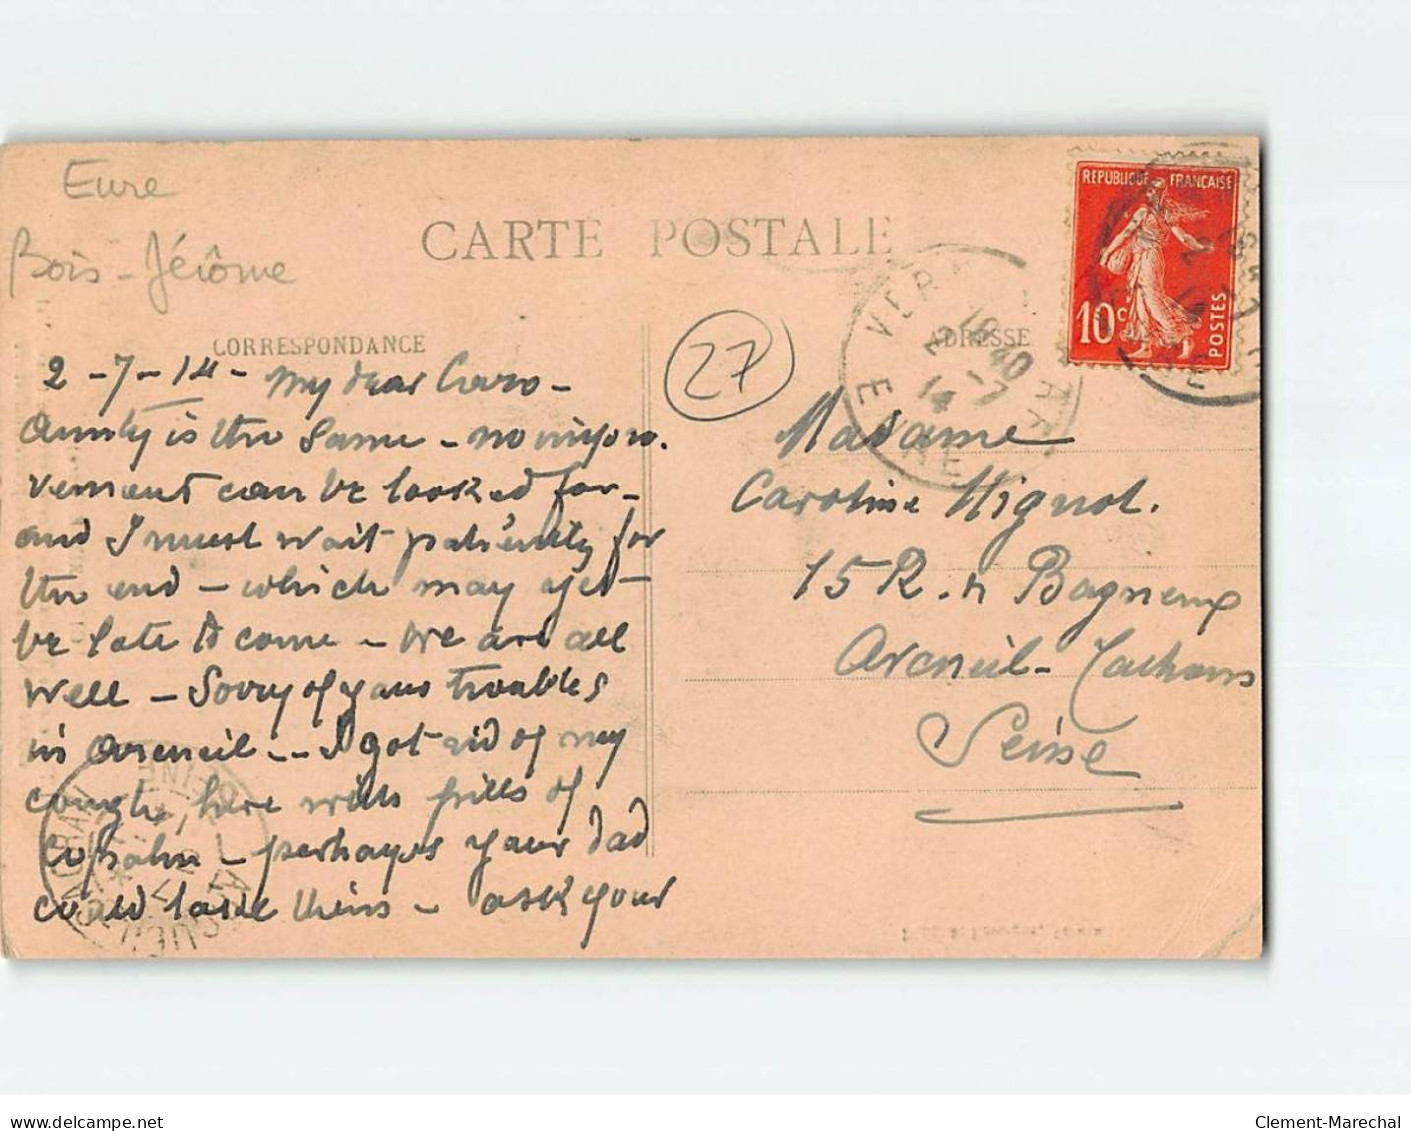 Eure
Bois-Jérôme
CARTE POSTALE
CORRESPONDANCE
ADRESSE
27
REPUBLIQUE FRANÇAISE
10c
POSTES
VER
EURE
2-7-14- My dear Caro-
Aunty is the same - no impro-
vement can be looked for-
and I must wait patiently for
the end - which may yet
be late to come - We are all
well - Sorry of your troubles
in Arcueil -- I got rid of my
cough, here with pills of
- perhaps your dad
could take them - ask your
Madame
Caroline Mignot.
15 R. de Bagneux
Arcueil-Cachan
Seine
Clement-Marechal